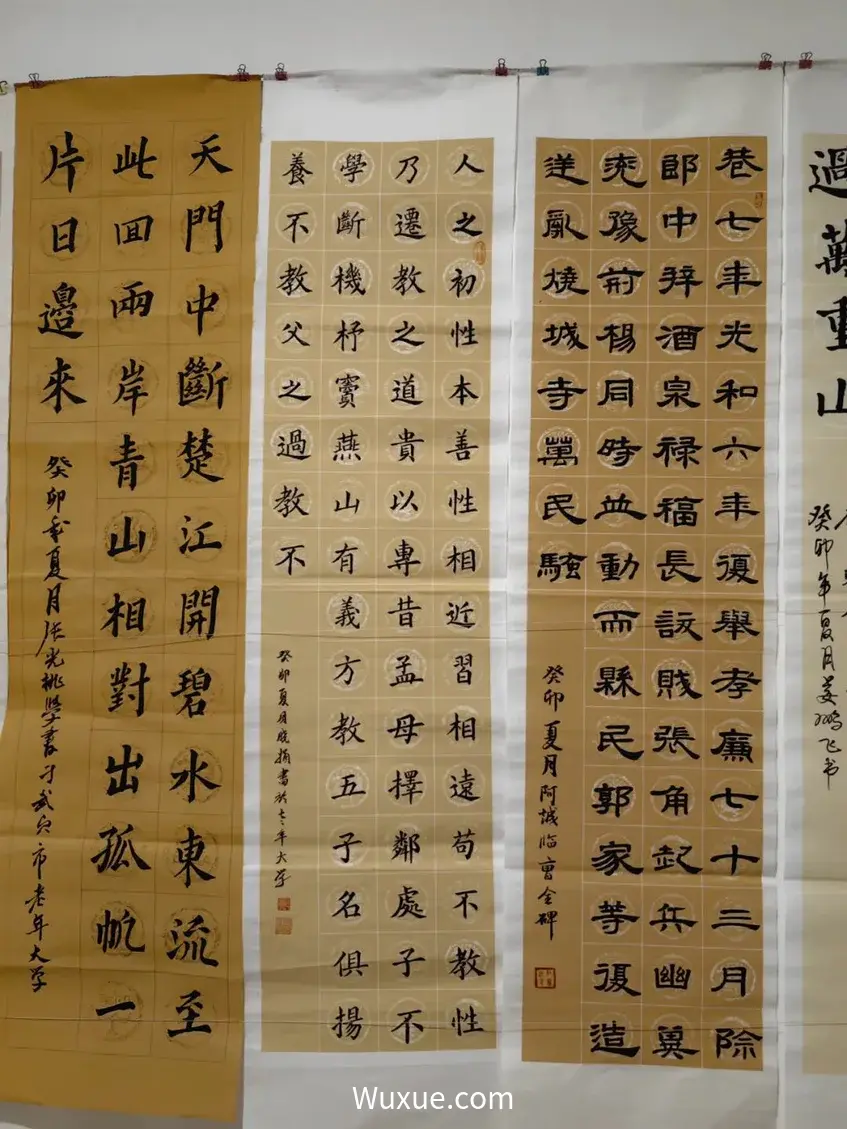 過萬重山
癸卯年夏月姜鹏飞书
巷七年光和六年復舉孝廉七十三月除
郎中拜酒泉禄福長訞賊張角起兵幽冀
兖豫荊楊同時並動而縣民郭家等復造
逆亂燒城寺萬民騷
癸卯夏月阿城临曹全碑
人之初性本善性相近習相遠苟不教性
乃遷教之道貴以專昔孟母擇鄰處子不
學斷機杼竇燕山有義方教五子名俱揚
養不教父之過教不
癸卯夏月晓楠書於老年大学
天門中斷楚江開碧水東流至
此回兩岸青山相對出孤帆一
片日邊來
癸卯年夏月张光桃學書于武穴市老年大学
Wuxue.com